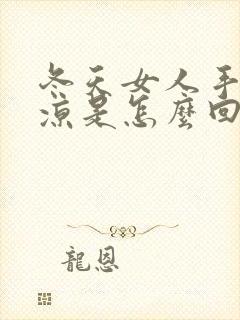 冬天女人手
涼是怎麼回
龍恩